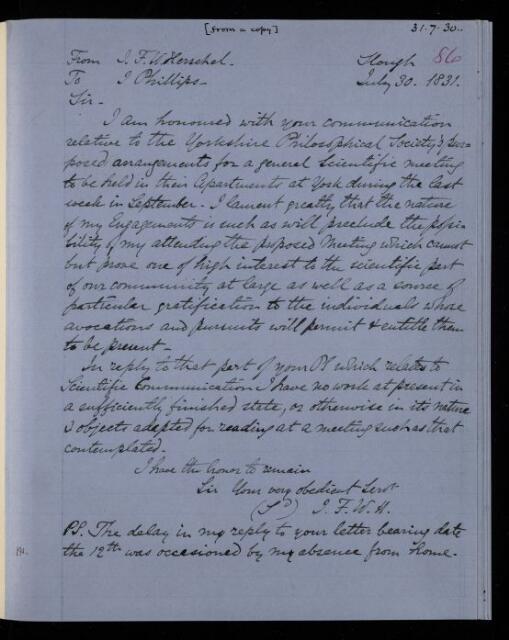 [from a copy] 31.7.30.
From J. F. W. Herschel. Slough 86
To J Phillips - July 30. 1831.
Sir -
I am honoured with your communication
relative to the Yorkshire Philosophical Society's pro-
posed arrangements for a general Scientific meeting
to be held in their Apartments at York during the last
week in September. I lament greatly that the nature
of my Engagements is such as will preclude the possi-
bility of my attending the proposed Meeting which cannot
but prove one of high interest to the scientific part
of our community at large as well as a source of
particular gratification to the individuals whose
avocations and pursuits will permit & entitle them
to be present -
In reply to that part of your which relates to
Scientific Communication I have no work at present in
a sufficiently finished state, or otherwise in its nature
& objects adapted for reading at a meeting such as that
contemplated -
I have the honor to remain
Sir Your very obedient Servt
J. F. W. H.
PS. The delay in my reply to your letter bearing date
the 12th was occasioned by my absence from Home.